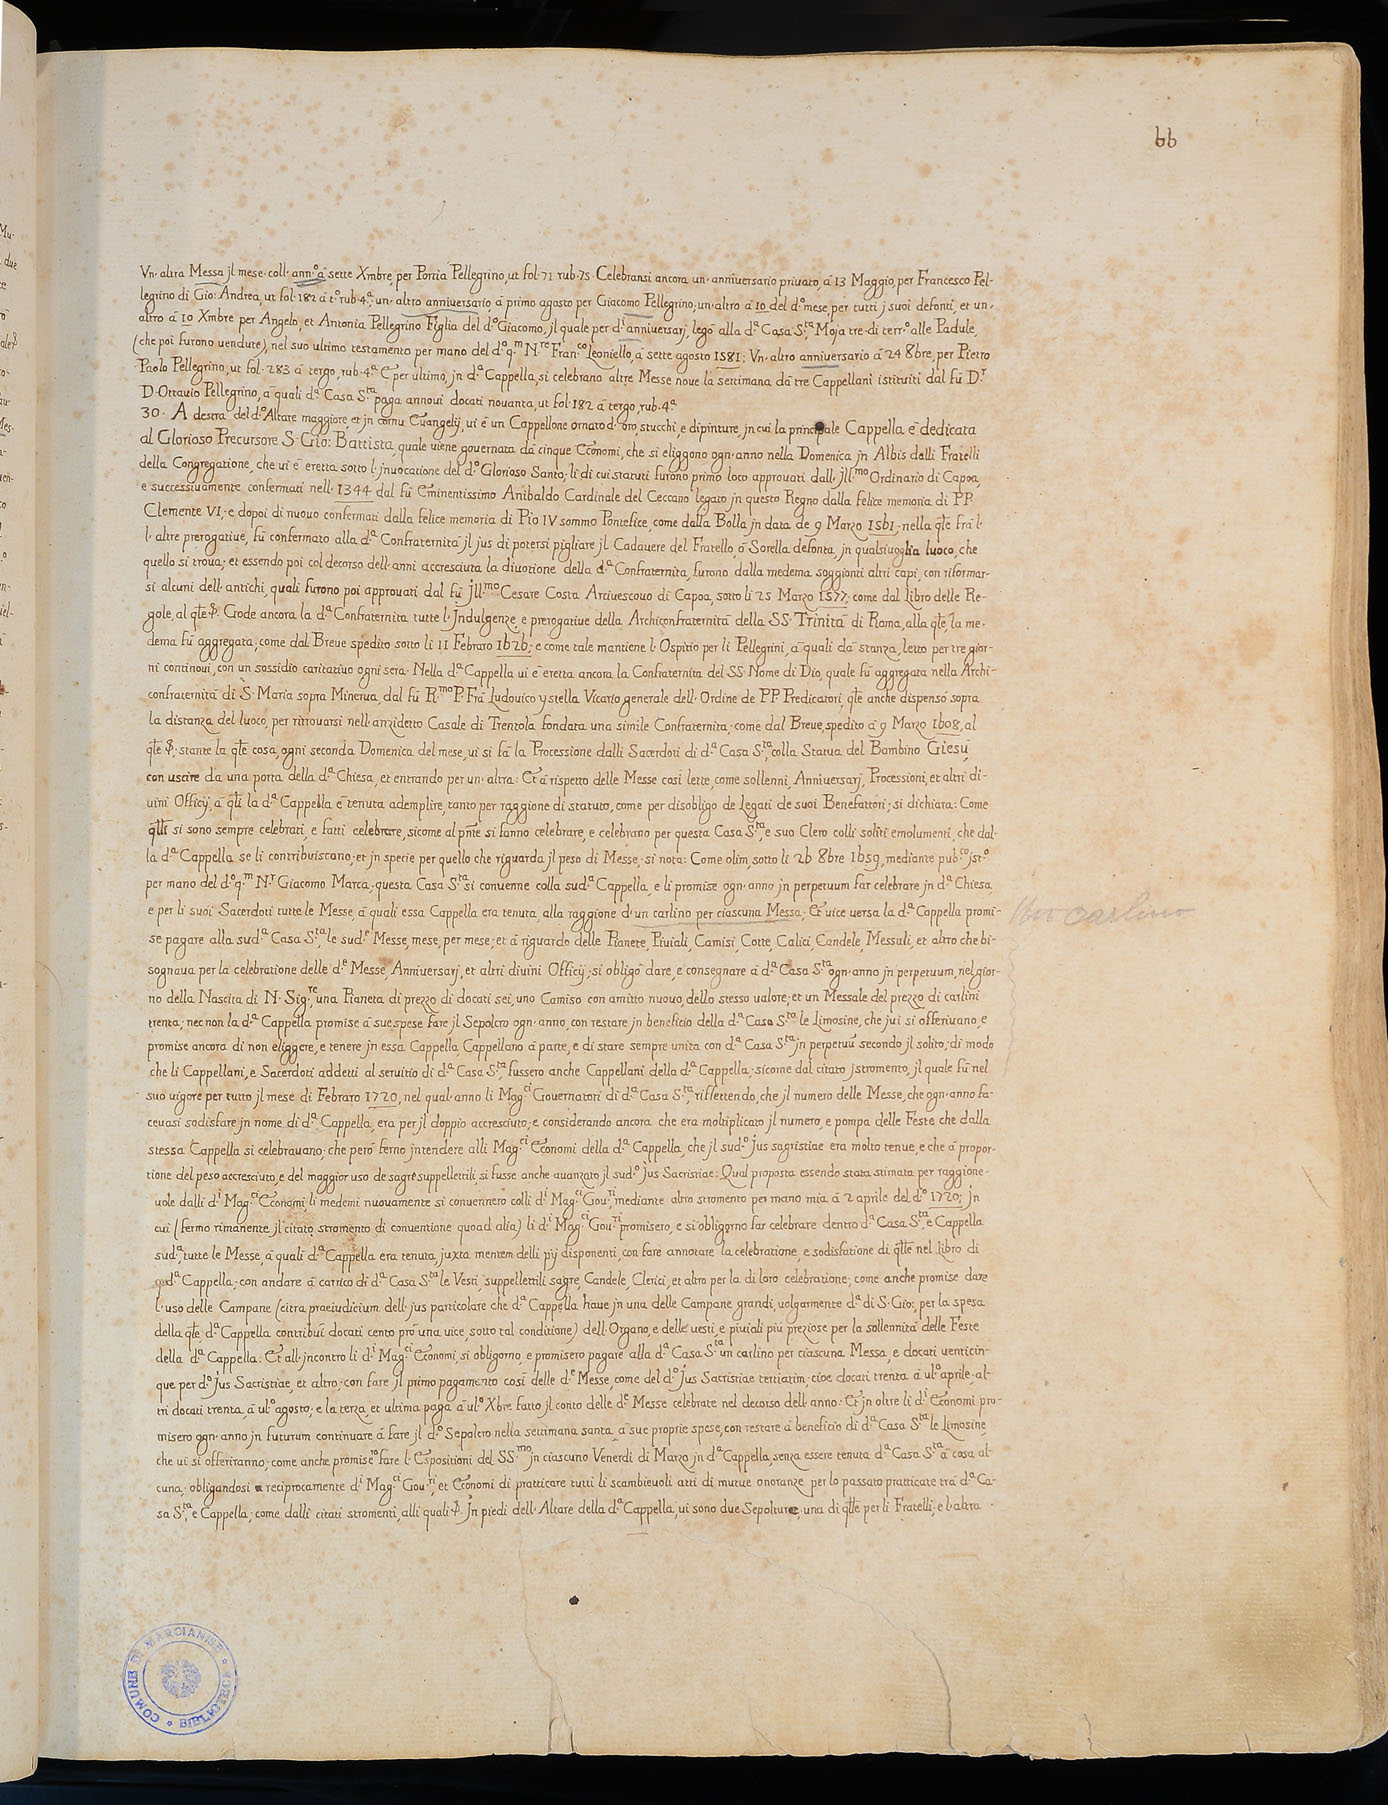 66
Vn· altra Messa jl mese· coll· ann:º à sette Xmbre, per Portia Pellegrino, ut fol· 71 rub· 75· Celebransi ancora un· anniuersario priuato, à 13 Maggio, per Francesco Pel-
legrino di Gio: Andrea, ut fol· 182 à t:º rub· 4ª; un· altro anniuersario, à primo agosto per Giacomo Pellegrino; un· altro à 10 del d:º mese, per tutti j suoi defonti, et un·
altro à 10 Xmbre per Angelo, et Antonia Pellegrino Figlia del d:º Giacomo, jl quale per d:i anniuersarj, legò alla d:ª Casa S:ta Moja tre· di terr:º alle Padule,
(che poi furono uendute), nel suo ultimo testamento per mano del d:º q:m N:re Fran:co Leoniello, à sette agosto 1581; Vn· altro anniuersario à 24 8bre, per Pietro
Paolo Pellegrino, ut fol· 283 à tergo, rub· 4ª· E per ultimo, jn d:ª Cappella, si celebrano altre Messe noue la settimana dà tre Cappellani istituiti dal fù D:r
D· Ottauio Pellegrino, à quali d:ª Casa S:ta paga annoui docati nouanta, ut fol· 182 à tergo, rub· 4ª
30· A destra del d:º Altare maggiore et jn cornu Euangelij, ui è un Cappellone ornato d· oro, stucchi, e dipinture, jn cui la principale Cappella è dedicata
al Glorioso Precursore S· Gio: Battista, quale uiene gouernata dà cinque Economi, che si eliggono ogn· anno nella Domenica jn Albis dalli Fratelli
della Congregatione, che ui è eretta sotto l· jnuocatione del d:º Glorioso Santo; li di cui statuti furono primo loco approuati dall· Jll:mo Ordinario di Capoa,
e successiuamente confermati nell· 1344 dal fù Eminentissimo Anibaldo Cardinale del Ceccano legato jn questo Regno dalla felice memoria di PP·
Clemente VI; e dopoi di nuouo confermati dalla felice memoria di Pio IV sommo Pontefice, come dalla Bolla jn data de 9 Marzo 1561; nella qłe frà l·
l· altre prerogatiue, fù confermato alla d:ª Confraternità jl jus di potersi pigliare jl Cadauere del Fratello, ò Sorella defonta, jn qualsiuoglia luoco, che
quello si troua; et essendo poi col decorso dell· anni accresciuta la diuotione della d:ª Confraternita, furono dalla medema soggionti altri capi, con riformar-
si alcuni dell· antichi, quali furono poi approuati dal fù Jll:mo Cesare Costa Arciuescouo di Capoa, sotto li 25 Marzo 1577; come dal Libro delle Re-
gole, al qłe ꝑ· Gode ancora la d:ª Confraternita tutte l· Jndulgenze, e prerogatiue della Archiconfraternità della SS· Trinità di Roma, alla qłe, la me-
dema fù aggregata; come dal Breue spedito sotto li 11 Febraro 1626; e come tale mantiene l· Ospitio per li Pellegrini, à quali dà stanza, letto per tre gior-
ni continoui, con un sossidio caritatiuo ogni sera· Nella d:ª Cappella ui è eretta ancora la Confraternita del SS· Nome di Dio, quale fù aggregata nella Archi-
confraternità di S· Maria sopra Minerua, dal fù R:mo P· Frà Ludouico ystella Vicario generale dell· Ordine de PP· Predicatori, qłe anche dispensò sopra
la distanza del luoco, per ritrouarsi nell· anzidetto Casale di Trentola fondata una simile Confraternita; come dal Breue, spedito à 9 Marzo 1608, al
qłe ꝑ; stante la qłe cosa, ogni seconda Domenica del mese, ui si fà la Processione dalli Sacerdoti di d:ª Casa S:ta, colla Statua del Bambino Giesù,
con uscire dà una porta della d:ª Chiesa, et entrando per un· altra: Et à rispetto delle Messe così lette, come sollenni, Anniuersarj, Processioni, et altri di-
uini Officij, à qłi la d:ª Cappella è tenuta adempire, tanto per raggione di statuto, come per disobligo de Legati de suoi Benefattori; si dichiara: Come
qłli si sono sempre celebrati, e fatti celebrare, sicome al pnte si fanno celebrare, e celebrano per questa Casa S:ta, e suo Clero colli soliti emolumenti, che dal-
la d:ª Cappella se li contribuiscono; et jn specie per quello che riguarda jl peso di Messe; si nota: Come olim, sotto li 26 8bre 1659, mediante pub:co jst:º
per mano del d:º q:m N:r Giacomo Marca; questa Casa S:ta si conuenne colla sud:ª Cappella, e li promise ogn· anno jn perpetuum far celebrare jn d:ª Chiesa,
e per li suoi Sacerdoti tutte le Messe, à quali essa Cappella era tenuta, alla raggione d'un carlino per ciascuna Messa; Et uice uersa la d:ª Cappella promi-
un carlino
se pagare alla sud:ª Casa S:ta, le sud:e Messe, mese, per mese; et à riguardo delle Pianete, Piuiali, Camisi, Cotte, Calici, Candele, Messali, et altro che bi-
sognaua per la celebratione delle d:e Messe, Anniuersarj, et altri diuini Officij; si obligò dare, e consegnare à d:ª Casa S:ta ogn· anno jn perpetuum, nel gior-
no della Nascita di N· Sig:re, una Pianeta di prezzo di docati sei, uno Camiso con amitto nuouo, dello stesso ualore; et un Messale del prezzo di carlini
trenta; nec non la d:ª Cappella promise à sue spese fare jl Sepolcro ogn· anno, con restare jn beneficio della d:ª Casa S:ta le Limosine, che jui si offeriuano, e
promise ancora di non eliggere, e tenere jn essa Cappella, Cappellano à parte, e di stare sempre unita con d:ª Casa S:ta jn perpetuũ secondo jl solito; di modo
che li Cappellani, e Sacerdoti addetti al seruitio di d:ª Casa S:ta, fussero anche Cappellani della d:ª Cappella; sicome dal citato jstromento, jl quale fù nel
suo uigore per tutto jl mese di Febraro 1720, nel qual· anno li Mag:ci Gouernatori di d:ª Casa S:ta, riflettendo, che jl numero delle Messe, che ogn· anno fa-
ceuasi sodisfare jn nome di d:ª Cappella, era per jl doppio accresciuto; e considerando ancora che era moltiplicato jl numero, e pompa delle Feste che dalla
stessa Cappella si celebrauano; che però ferno jntendere alli Mag:ci Economi della d:ª Cappella, che jl sud:º Jus sagristiae era molto tenue, e che à propor-
tione del peso accresciuto, e del maggior uso de sagre suppellettili si fusse anche auanzato jl sud:º Jus Sacristiae: Qual proposta essendo stata stimata per raggione-
uole dalli d:i Mag:ci Economi, li medemi nuouamente si conuennero colli d:i Mag:ci Gou:ri, mediante altro stromento per mano mia à 2 aprile del d:º 1720; jn
cui (fermo rimanente jl citato stromento di conuentione quoad alia) li d:i Mag:ci Gou:ri promisero, e si obligorno far celebrare dentro d:ª Casa S:ta, e Cappella
sud:ª, tutte le Messe, à quali d:ª Cappella era tenuta, juxta mentem delli pij disponenti, con fare annotare la celebratione, e sodisfatione di qłle nel Libro di
d:ª Cappella; con andare à carrico di d:ª Casa S:ta le Vesti, suppellettili sagre, Candele, Clerici, et altro per la di loro celebratione; come anche promise dare
l· uso delle Campane (citra praeiudicium dell· jus particolare che d:ª Cappella haue jn una delle Campane grandi, uolgarmente d:ª di S· Gio:, per la spesa
della qłe, d:ª Cappella contribuì docati cento prò una uice, sotto tal conditione) dell· Organo, e delle uesti, e piuiali più preziose per la sollennità delle Feste
della d:ª Cappella: Et all· jncontro li d:i Mag:ci Economi, si obligorno, e promisero pagare alla d:ª Casa S:ta un carlino per ciascuna Messa, e docati uenticin-
que per d:º Jus Sacristiae, et altro; con fare jl primo pagamento così delle d:e Messe, come del d:º Jus Sacristiae tertiatim; cioe docati trenta à ul:º aprile, al-
tri docati trenta, à ul:º agosto; e la terza, et ultima paga à ul:º Xbre fatto jl conto delle d:e Messe celebrate nel decorso dell· anno· Et jn oltre li d:i Economi pro-
misero ogn· anno jn futurum continuare à fare jl d:º Sepolcro nella settimana santa, à sue proprie spese, con restare à beneficio di d:ª Casa S:ta le Limosine
che ui si offeriranno; come anche promisero fare l· Espositioni del SS:mo jn ciascuno Venerdì di Marzo jn d:ª Cappella, senza essere tenuta d:ª Casa S:ta à cosa al-
cuna; obligandosi reciprocamente d:i Mag:ci Gou:ri, et Economi di pratticare tutti li scambieuoli atti di mutue onoranze, per lo passato pratticate trà d:ª Ca-
sa S:ta, e Cappella; come dalli citati stromenti, alli quali ꝑ· Jn piedi dell· Altare della d:ª Cappella, ui sono due Sepolture, una di qłle per li Fratelli, e l· altra
COMUNE DI MARCIANISE * BIBLIOTECA *